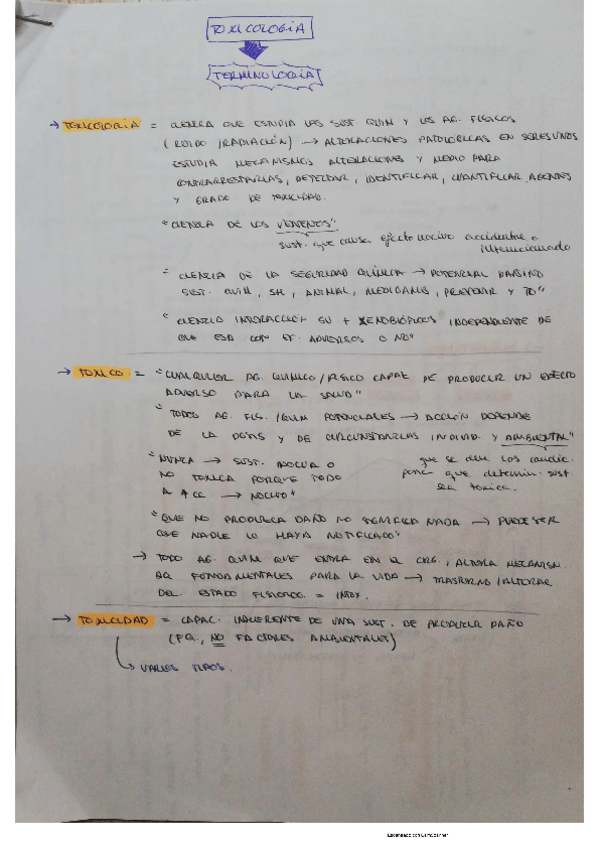 TOXICOLOGÍA
TERMINOLOGÍA
→ TOXICOLOGÍA = CIENCIA QUE ESTUDIA LAS SUST. QUIM Y LOS AG. FÍSICOS
(RUIDO /RADIACIÓN) → ALTERACIONES PATOLÓGICAS EN SERES VIVOS
ESTUDIA MECANISMOS ALTERACIONES Y MEDIO PARA
CONTRARRESTARLAS, DETECTAR, IDENTIFICAR, CUANTIFICAR AGENTES
Y GRADO DE TOXICIDAD.
"CIENCIA DE LOS VENENOS"
sust. que causa efecto nocivo accidental o
intencionado
"CIENCIA DE LA SEGURIDAD QUÍMICA → POTENCIAL DAÑINO
SUST. QUIM, SH, ANIMAL, MEDIOAMB, PREVENIR Y TO"
"CIENCIA INTERACCIÓN SV + XENOBIÓTICOS INDEPENDIENTE DE
QUE SEA CON EF. ADVERSOS O NO"
→ TOXICO = "CUALQUIER AG. QUÍMICO/FÍSICO CAPAZ DE PRODUCIR UN EFECTO
ADVERSO PARA LA SALUD"
"TODOS AG. FIS./QUIM POTENCIALES → ACCIÓN DEPENDE
DE LA DOSIS Y DE CIRCUNSTANCIAS INDIVID. Y AMBIENTAL"
que se den los condic.
para que determin. sust
sea toxica.
"NUNCA → SUST. INOCUA O
NO TOXICA PORQUE TODO
A ↑ CC → NOCIVO"
"QUE NO PRODUZCA DAÑO NO SIGNIFICA NADA → PUEDE SER
QUE NADIE LO HAYA NOTIFICADO"
→ TODO AG. QUIM QUE ENTRA EN EL ORG., ALTERA MECANISM.
BQ FUNDAMENTALES PARA LA VIDA → TRASTORNO/ALTERAC
DEL ESTADO FISIOLÓG. = INTOX.
→ TOXICIDAD = CAPAC. INHERENTE DE UNA SUST. DE PRODUCIR DAÑO
(FQ., NO FACTORES AMBIENTALES)
→ VARIOS TIPOS.
Escaneado con CamScanner